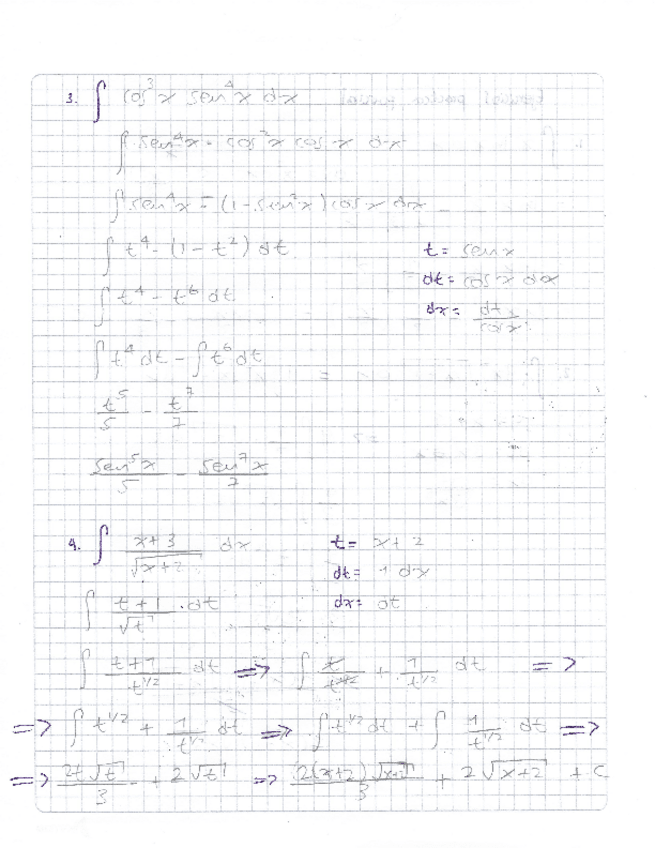 3. ∫ cos³x sen⁴x dx
∫ sen⁴x · cos²x cos x dx
∫ sen⁴x = (1 - sen²x) cos x dx
∫ t⁴ - (1 - t²) dt t = sen x
∫ t⁴ - t⁶ dt dt = cos x dx
dx = dt/cos x
∫ t⁴ dt - ∫ t⁶ dt
t⁵/5 - t⁷/7
sen⁵x/5 - sen⁷x/7
4. ∫ (x+3)/√(x+2) dx t = x+2
dt = 1 dx
∫ (t+1)/√t · dt dx = dt
∫ (t+1)/t^(1/2) dt => ∫ t/t^(1/2) + 1/t^(1/2) dt =>
=> ∫ t^(1/2) + 1/t^(1/2) dt => ∫ t^(1/2) dt + ∫ 1/t^(1/2) dt =>
=> 2t√t/3 + 2√t => 2(x+2)√(x+2)/3 + 2√(x+2) + C